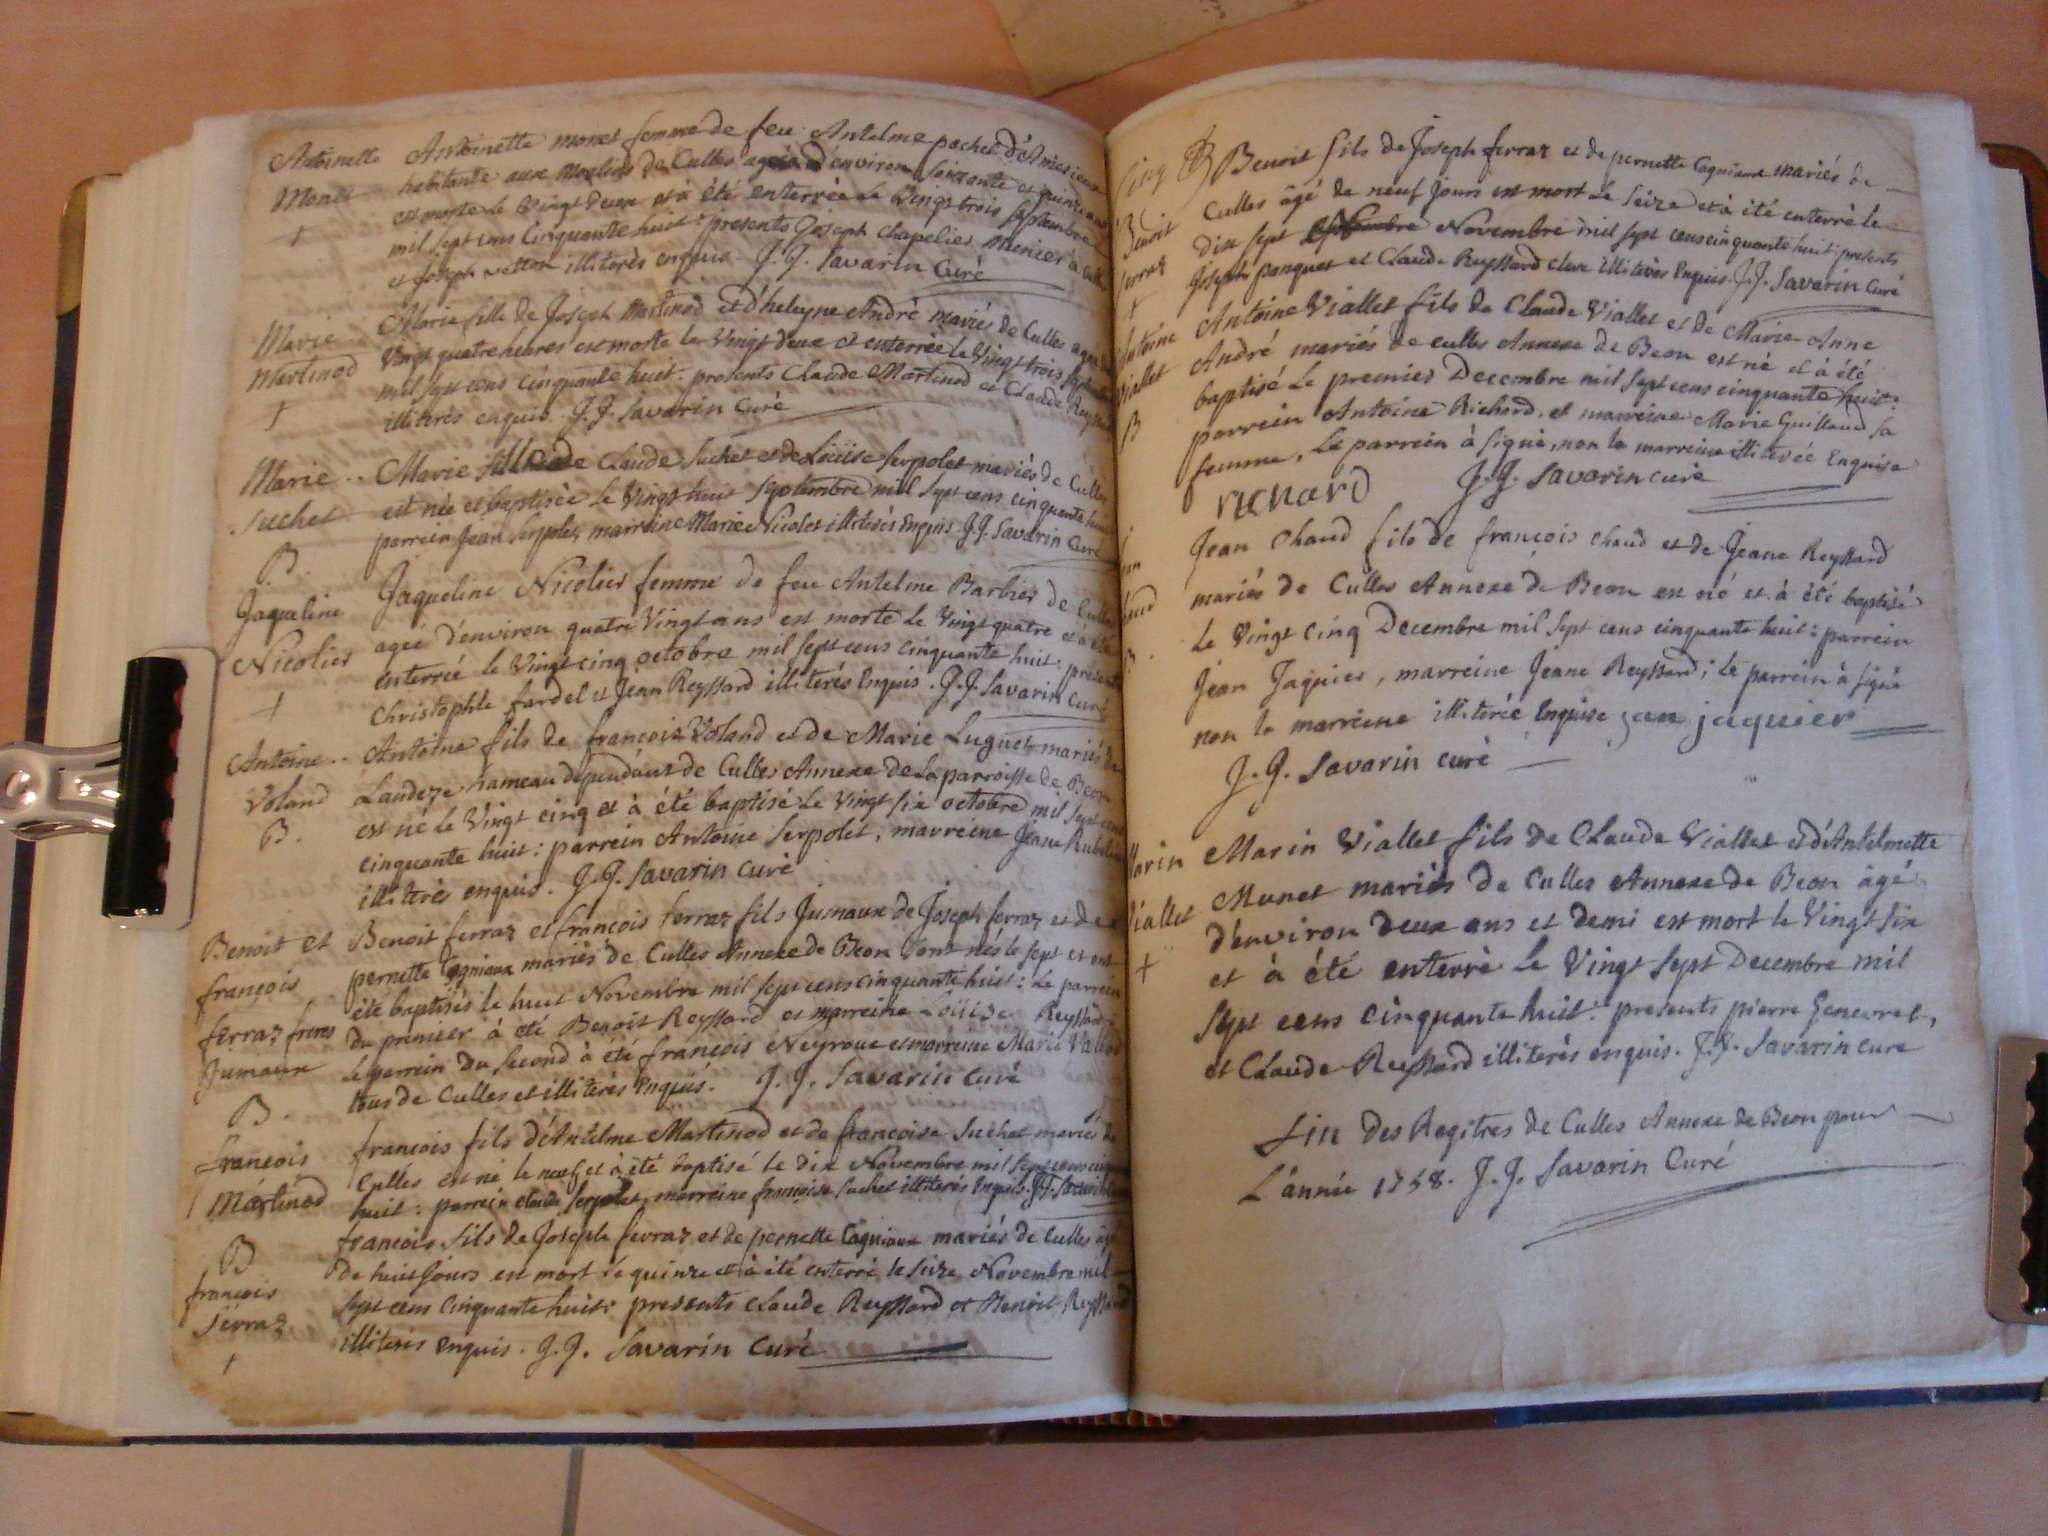 Antoinette
Monet
+
Antoinette monet femme de feu Antelme pochet d'Ameisieux
habitante aux Moulins de Culles agée d'environ soixante et quinze ans
est morte le Vingt deux et à été enterrée le Vingt trois septembre
mil sept cens Cinquante huit: presents Joseph chapelier Menier à Culles
et Joseph illiterés enquis. J. J. Savarin Curé
Marie
Martinod
+
Marie fille de Joseph Martinod et d'heleyne André mariés de Culles agée de
Vingt quatre heures est morte le Vingt deux et enterrée le Vingt trois septembre
mil sept cens cinquante huit. presents Claude Martinod et Claude Reyssard
illiterés enquis. J. J. Savarin Curé
Marie
Suchet
B.
Marie fille de Claude Suchet et de Loüise Serpolet mariés de Culles
est née et baptisée le Vingt huit septembre mil sept cens cinquante huit
parrein Jean Serpolet, marreine Marie Nicolet illiterés Enquis. J. J. Savarin Curé
Jaqueline
Nicolier
+
Jaqueline Nicolier femme de feu Antelme Barbier de Culles
ageé d'environ quatre Vingt ans est morte le Vingt quatre et a été
enterrée le Vingt cinq octobre mil sept cens cinquante huit: presents
Christophle fardel et Jean Reyssard illiterés Enquis. J. J. Savarin Curé
Antoine
Voland
B.
Antoine fils de francois Voland et de Marie Luguet mariés de
Landeze hameau dependant de Culles Annexe de la parroisse de Beon
est né le Vingt cinq et à été baptisé le Vingt six octobre mil sept cens
cinquante huit: parrein Antoine Serpolet, marreine Jeane
illiterés enquis. J. J. Savarin Curé
Benoit et
françois
ferraz freres
Jumaux
B.
Benoit ferraz et francois ferraz fils Jumaux de Joseph ferraz et de
pernette Cagniaux mariés de Culles Annexe de Beon sont nés le sept et ont
été baptisés le huit Novembre mil sept cens cinquante huit: Le parrein
du premier à été Benoit Reyssard et marreine Loüise Reyssard
le parrein du second à été francois Neyroue et marreine Marie
tous de Culles et illiterés Enquis. J. J. Savarin Curé
francois
Martinod
B
francois fils d'Antelme Martinod et de francoise Suchet mariés de
Culles est né le neuf et à été baptisé le dix Novembre mil sept cens cinquante
huit: parrein Claude Serpolet, marreine françoise Suchet illiterés Enquis. J. J. Savarin
francois
ferraz
+
francois fils de Joseph ferraz et de pernette Cagniaux mariés de Culles âgé
de huit Jours est mort le quinze et à été enterré le seize Novembre mil
sept cens Cinquante huit: presents Claude Reyssard et Benoit Reyssard
illiterés enquis. J. J. Savarin Curé
Cinq
Benoit
ferraz
+
Benoit fils de Joseph ferraz et de pernette Cagniaux mariés de
Culles âgé de neuf Jours est mort le seize et à été enterré le
dix sept Novembre mil sept cens cinquante huit: presents
Joseph panquet et Claude Reyssard clerc illiterés Enquis. J. J. Savarin Curé
Antoine
Viallet
B
Antoine Viallet fils de Claude Viallet et de Marie Anne
André mariés de culles Annexe de Beon est né et à été
baptisé le premier Decembre mil sept cens cinquante huit:
parrein Antoine Richard, et marreine Marie Guilland sa
femme, Le parrein à signé, non la marreine illiterée Enquise
richard J. J. Savarin curé
Jean Chaud fils de francois chaud et de Jeane Reyssard
mariés de Culles Annexe de Beon est né et à été baptisé
Le Vingt cinq Decembre mil sept cens cinquante huit: parrein
Jean Jaquier, marreine Jeane Reyssard; le parrein à signé
non la marreine illiterée Enquise jan jaquier
J. J. Savarin curé
Marin
Viallet
+
Marin Viallet fils de Claude Viallet et d'Antelmette
Munet mariés de Culles Annexe de Beon âgé
d'environ deux ans et demi est mort le Vingt six
et à été enterré le Vingt sept Decembre mil
sept cens Cinquante huit: presents pierre Genevret,
et Claude Reyssard illiterés enquis. J. J. Savarin curé
fin des Regitres de Culles Annexe de Beon pour
L'année 1758. J. J. Savarin Curé